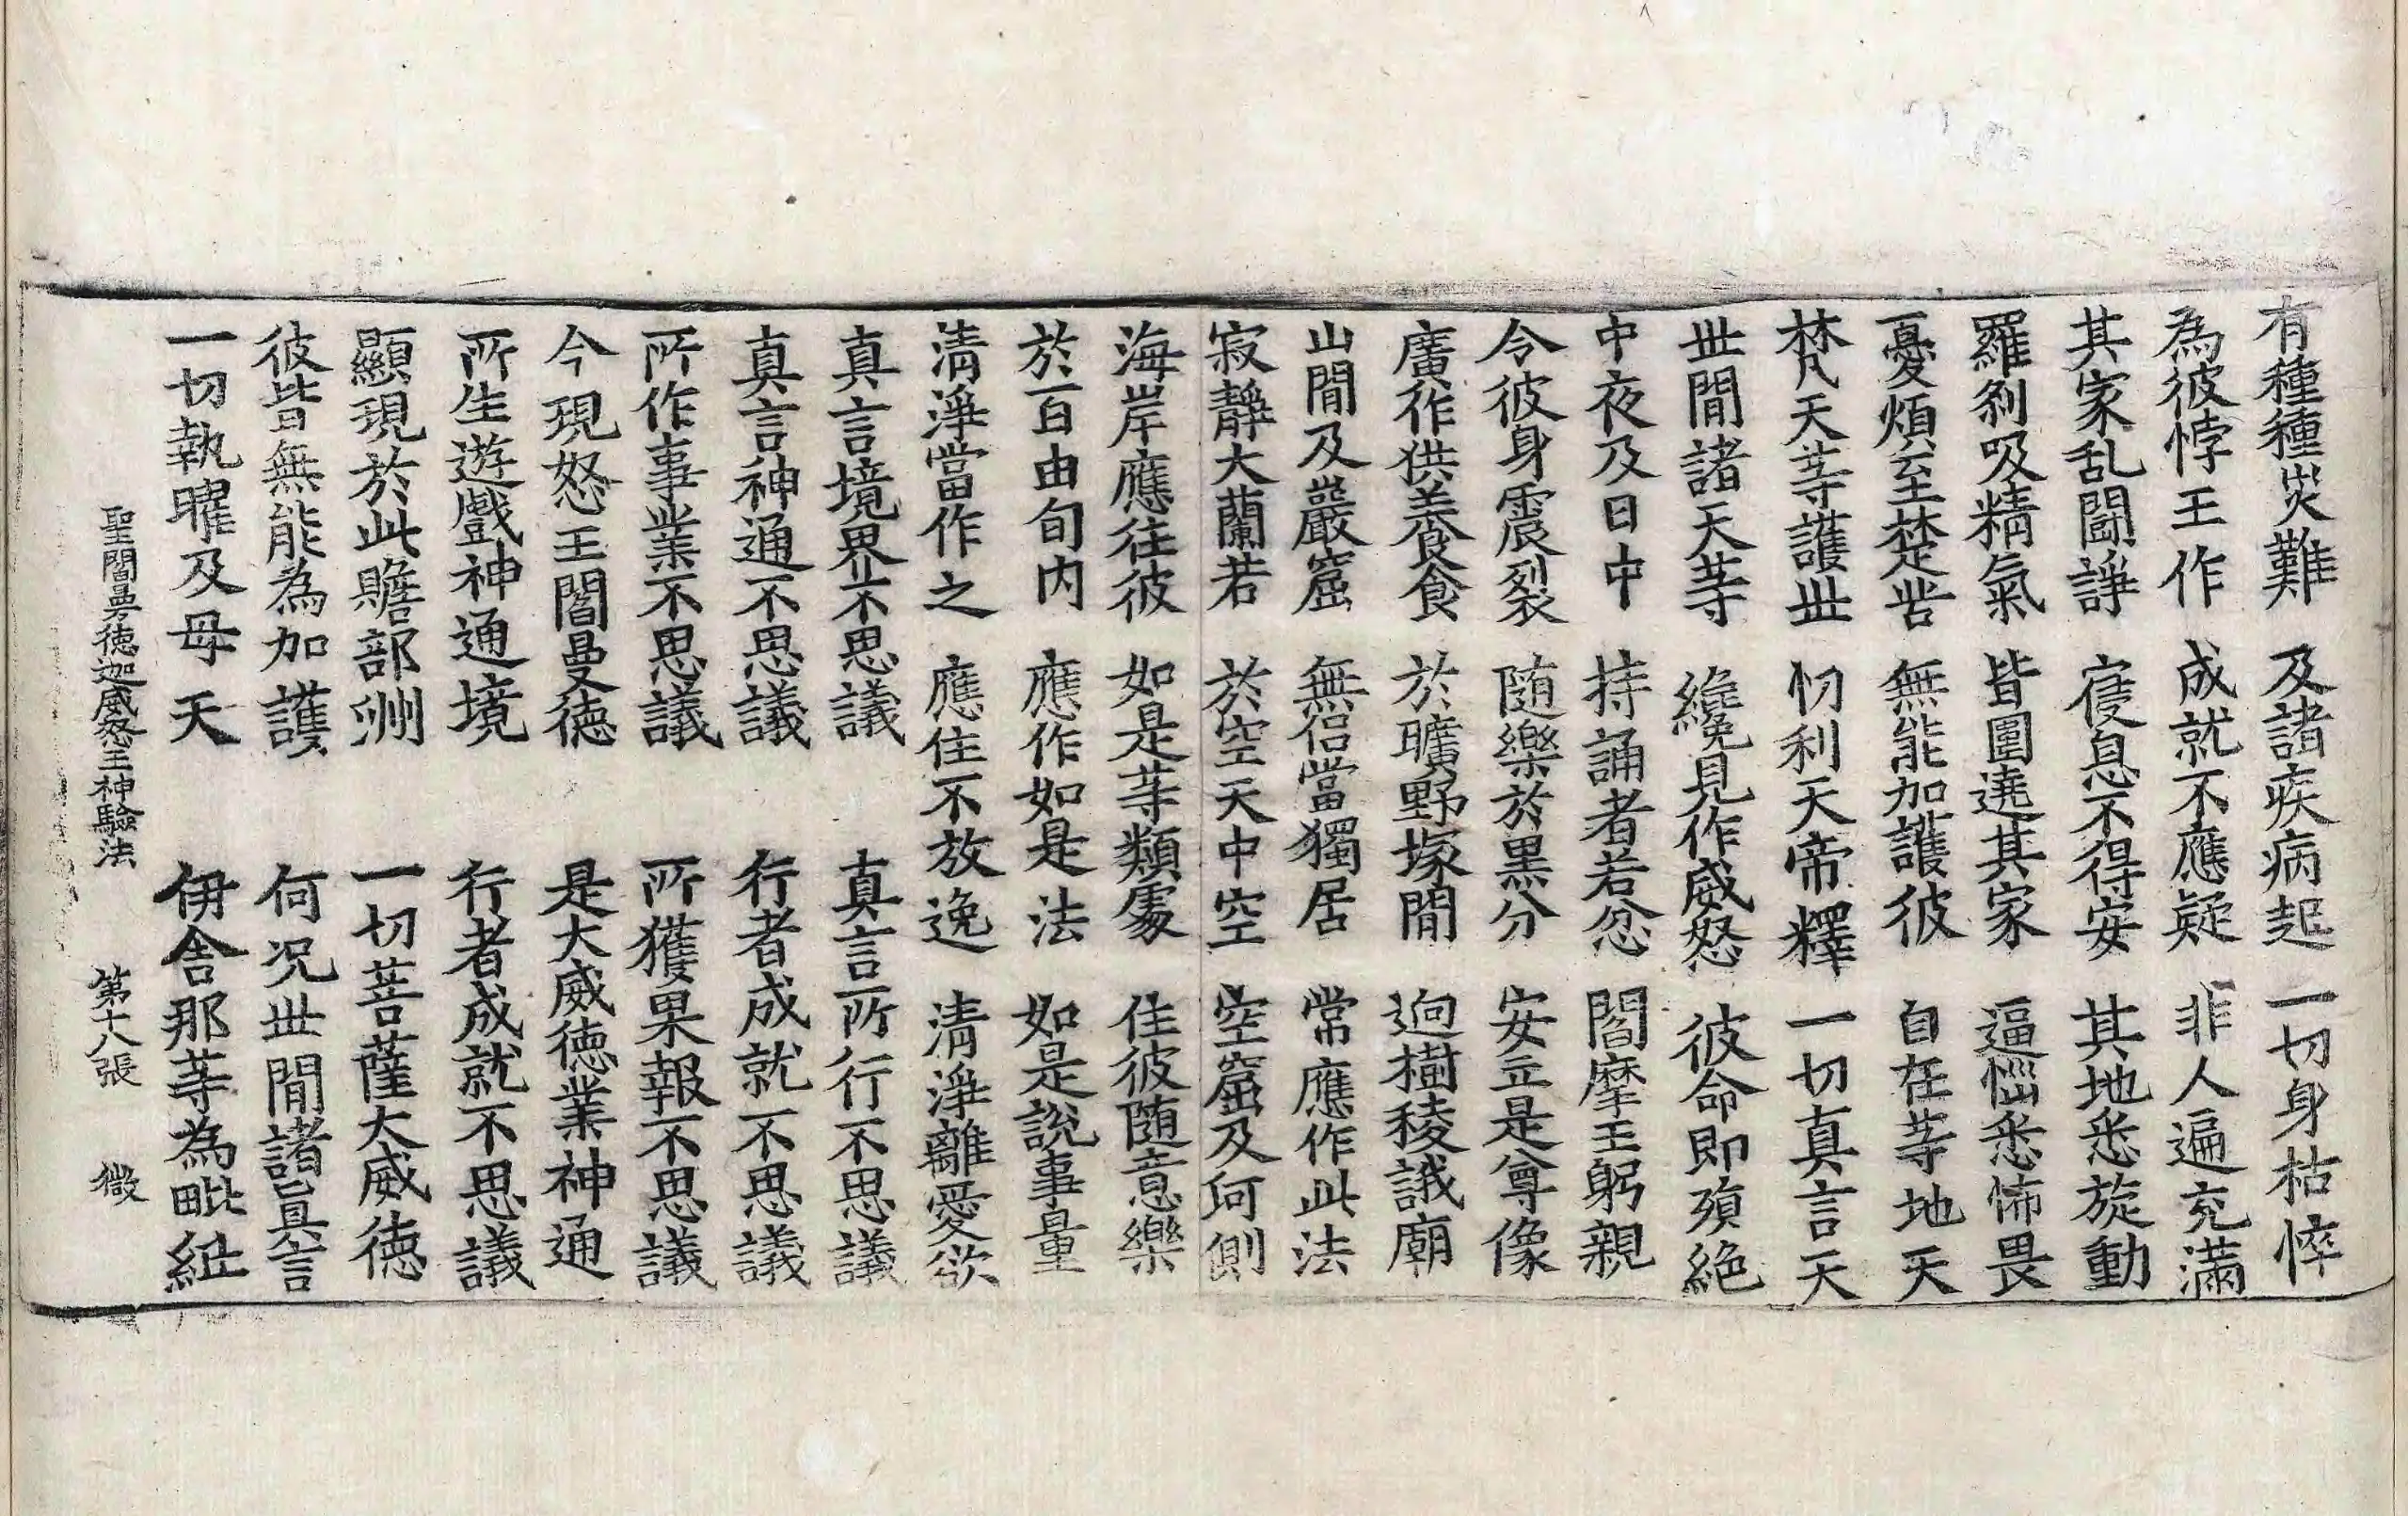 有種種災難　及諸疾病起　一切身枯悴
為彼悖王作　成就不應疑　非人遍充滿
其家乱鬪諍　寢息不得安　其地悉旋動
羅剎吸精氣　皆圍遶其家　逼惱悉怖畏
憂煩至楚苦　無能加護彼　自在䓁地天
梵天䓁護世　忉利天帝釋　一切真言天
世間諸天䓁　纔見作威怒　彼命即殞絶
中夜及日中　持誦者若忿　閻摩王躬親
令彼身震裂　随樂於黒分　安立是尊像
廣作供養食　於曠野塚間　逈樹稜誐廟
山間及巖窟　無侶當獨居　常應作此法
寂靜大蘭若　於空天中空　空窟及河側
海岸應往彼　如是䓁類處　住彼随意樂
於百由旬内　應作如是法　如是說事量
清淨當作之　應住不放逸　清淨離愛欲
真言境界不思議　真言所行不思議
真言神通不思議　行者成就不思議
所作事業不思議　所獲果報不思議
今現怒王閻曼德　是大威德業神通
所生遊戲神通境　行者成就不思議
顯現於此贍部洲　一切菩薩大威德
彼皆無能為加護　何況世間諸真言
一切執曜及母天　伊舎那䓁為毗紐
聖閻曼德迦威怒王神驗法　第十八張　㣲